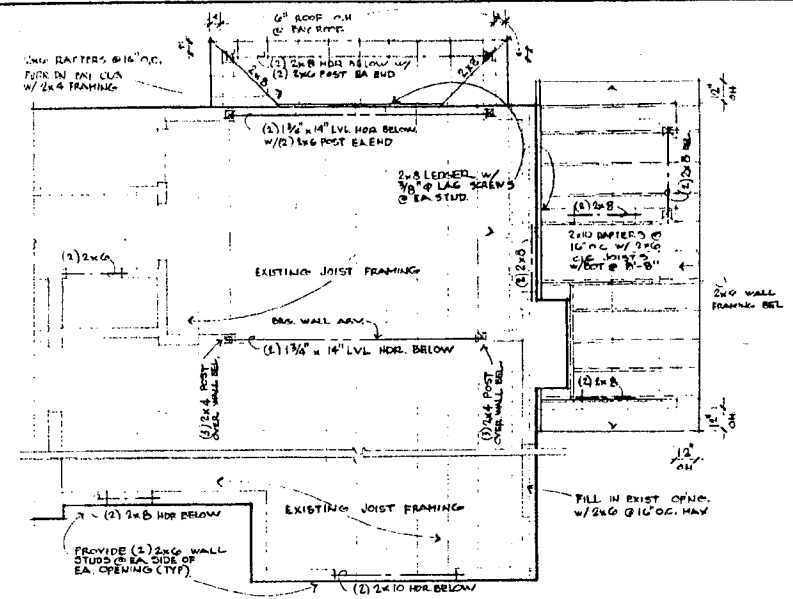 6" ROOF O.H
@ BAY ROOF
2x6 RAFTERS @ 16" O.C.
W/ 2x4 FRAMING
2x8
(2) 2x8 HDR BELOW W/
(2) 2x6 POST EA END
2x8
(2) 1 3/4" x 14" LVL HDR BELOW
W/(2) 2x6 POST EA END
2x8 LEDGER W/
3/8" φ LAG SCREWS
@ EA STUD.
12"
OH
(2) 2x8 BEL.
(2) 2x8
2x10 RAFTERS @
16" O.C. W/ 2x6
CLG JOISTS
W/BOT @ 8'-8"
2x6 WALL
FRAMING BEL
(2) 2x6
EXISTING JOIST FRAMING
(2) 2x8
BRG. WALL ABV.
(2) 1 3/4" x 14" LVL HDR. BELOW
(3) 2x4 POST
OVER WALL BEL.
(3) 2x4 POST
OVER WALL BEL.
(2) 2x8
12"
OH
12"
OH
FILL IN EXIST OP'NG.
W/ 2x6 @ 16" O.C. MAX
EXISTING JOIST FRAMING
(2) 2x8 HDR BELOW
PROVIDE (2) 2x6 WALL
STUDS @ EA. SIDE OF
EA. OPENING (TYP)
(2) 2x10 HDR BELOW